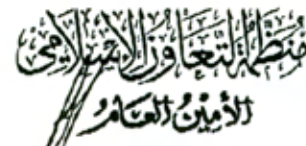 منظمة التعاون الإسلامي
الأمين العام